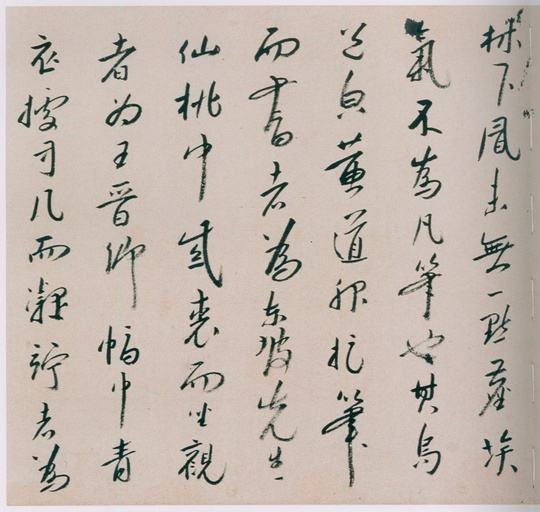 林下風味無一點塵埃
氣不為凡筆也其烏
黃道服捉筆
而書者為東坡先生
仙桃巾紫裘而坐觀
者為王晉卿幅巾青
衣據方几而凝竚者為